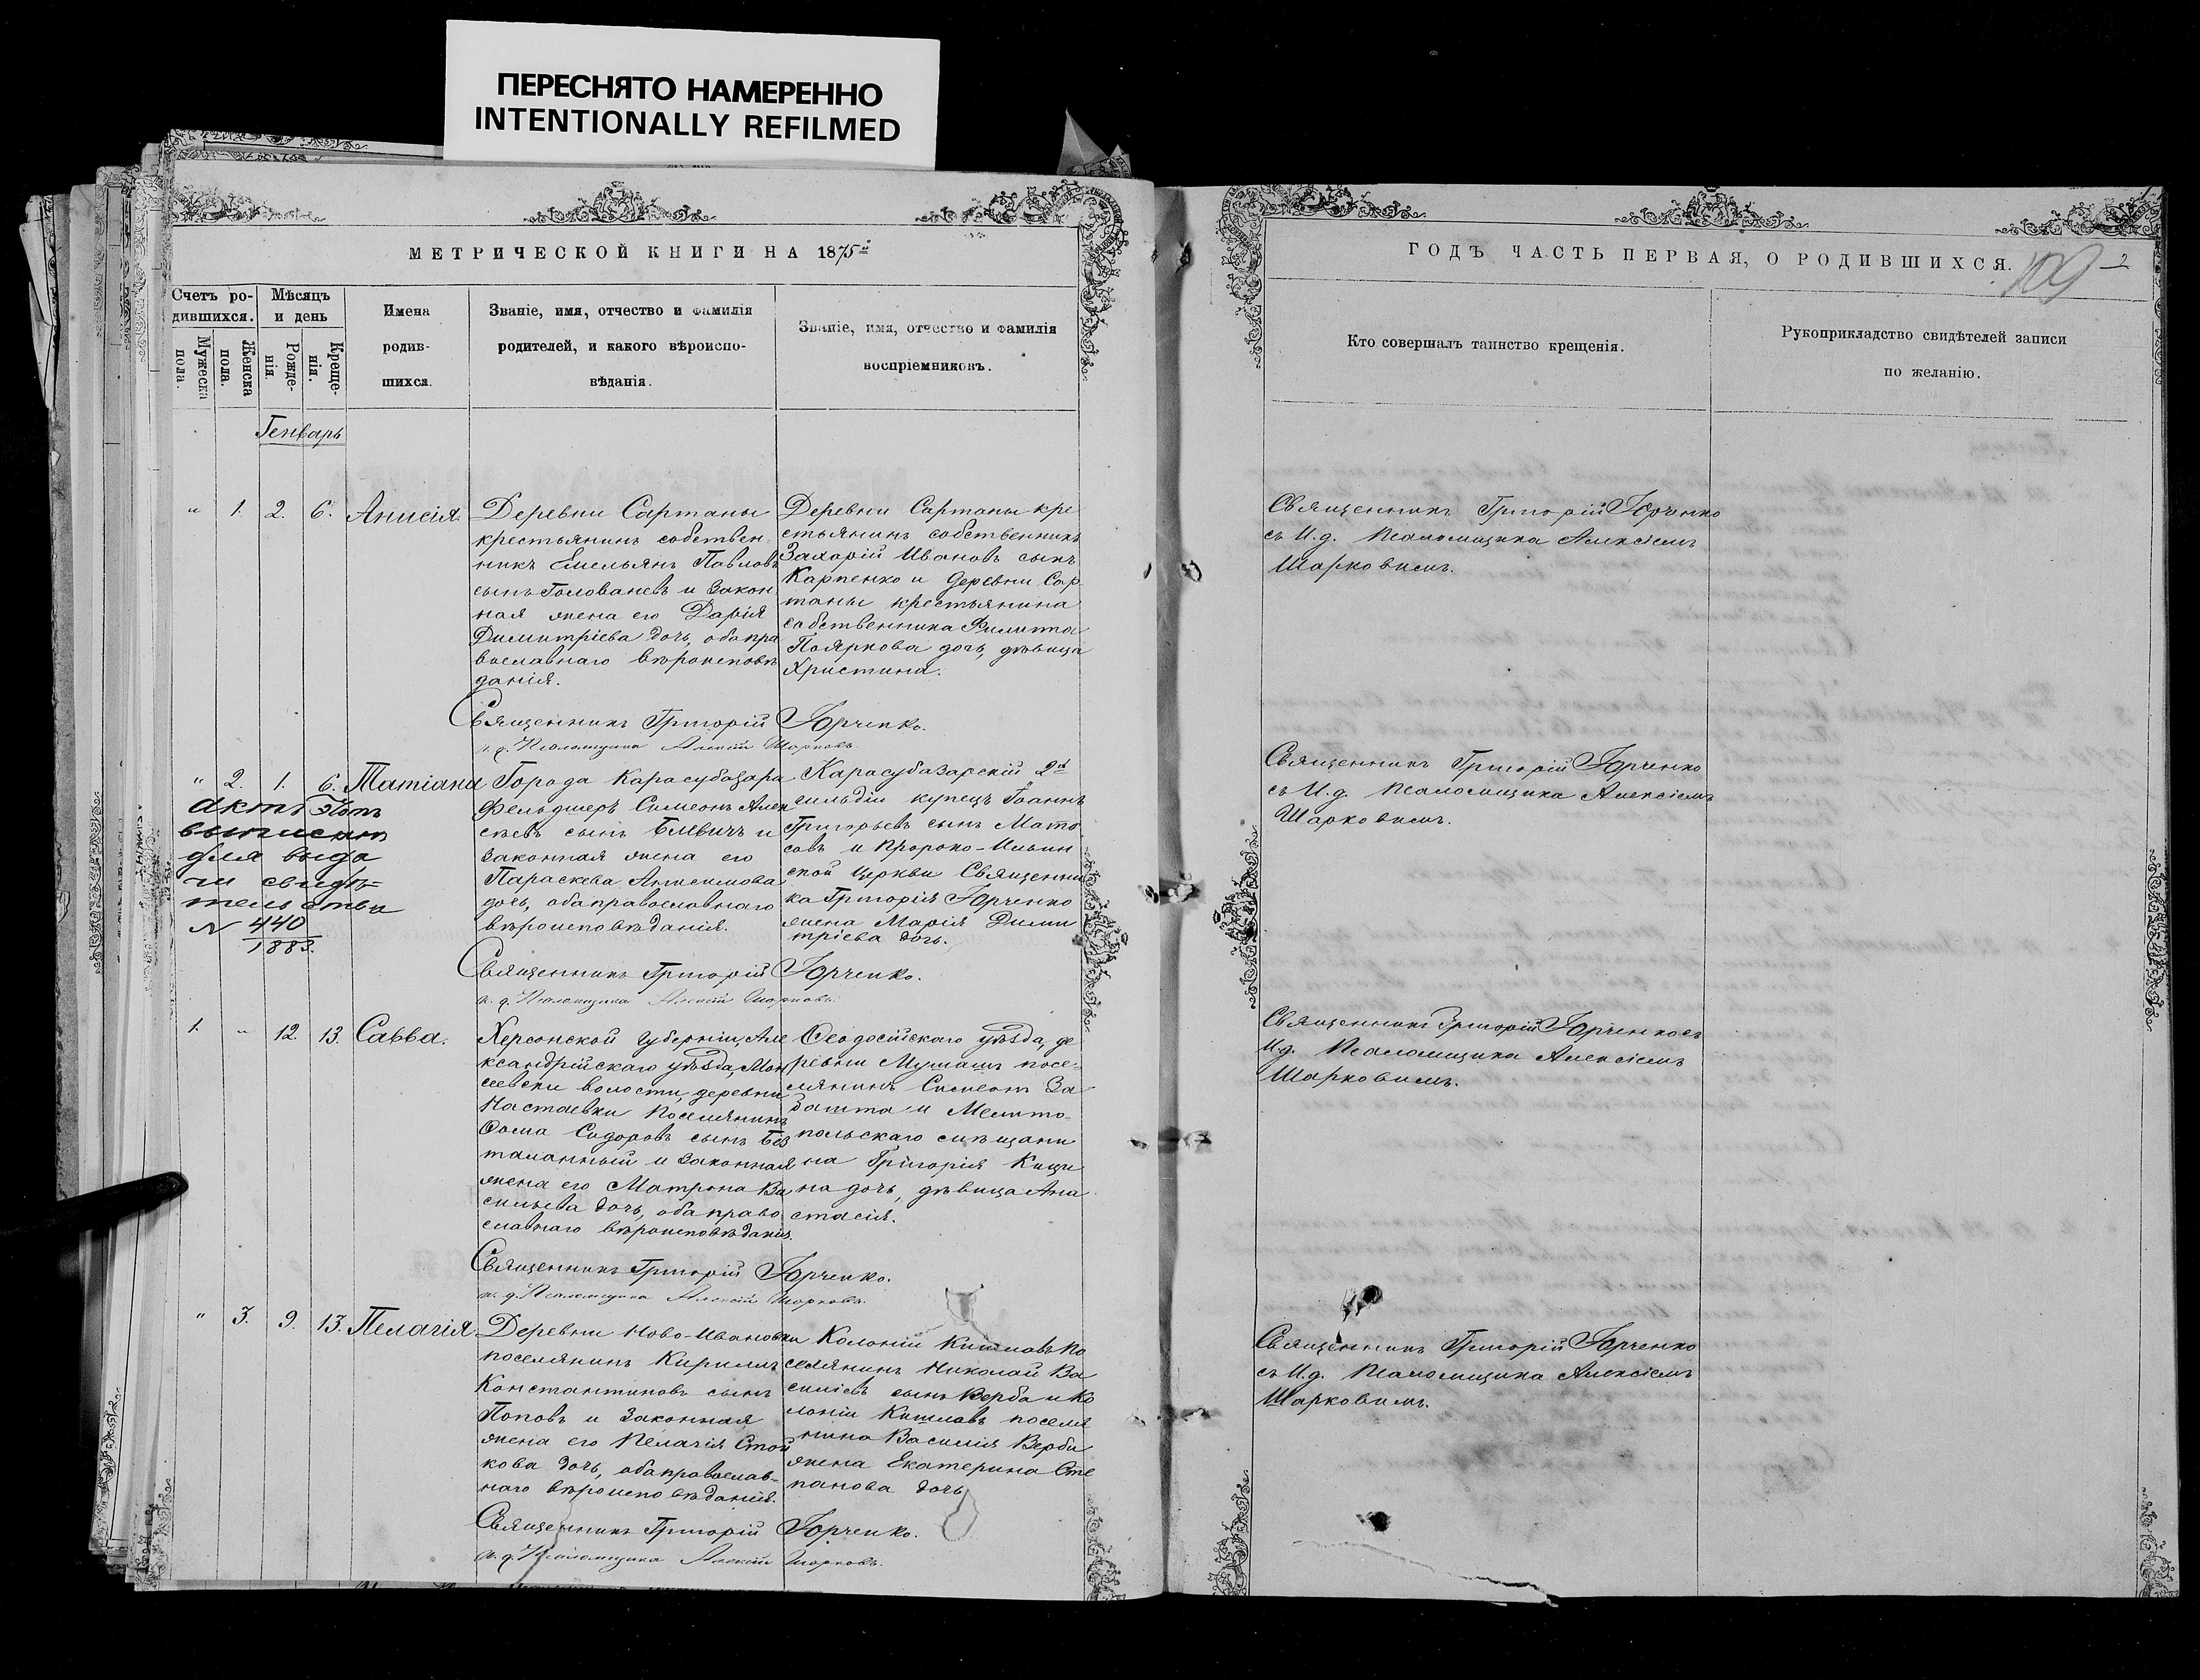 ПЕРЕСНЯТО НАМЕРЕННО
INTENTIONALLY REFILMED
МЕТРИЧЕСКОЙ КНИГИ НА 1875й
Счетъ ро-
дившихся.
Мужеска пола.
Женска пола.
Мѣсяцъ
и день
Рожде-
нія.
Креще-
нія.
Имена
родив-
шихся.
Званіе, имя, отчество и фамилія
родителей, и какого вѣроиспо-
вѣданія.
Званіе, имя, отчество и фамилія
воспріемниковъ.
Генварь
" 1. 2. 6. Анисія.
Деревни Сартаны
крестьянинъ собствен-
никъ Емельянъ Павловъ
сынъ Голованевъ и закон
ная жена его Дарія
Димитріева дочь, оба пра
вославнаго вѣроисповѣ
данія.
Деревни Сартаны кре
стьянинъ собственникъ
Захарій Ивановъ сынъ
Карпенко и деревни Сар
таны крестьянина
собственника Филиппа
Пояркова дочь, дѣвица
Христина.
Священникъ Григорій Юрченко.
и. д. Псаломщика Алексій Шарковъ.
" 2. 1. 6. Татіана
Актъ этотъ
выписанъ
для выда
чи свидѣ=
тельства
№ 440
1883.
Города Карасубазара
Фельдшеръ Симеонъ Алек
сѣевъ сынъ Блевичъ и
законная жена его
Параскева Анисимова
дочь, оба православнаго
вѣроисповѣданія.
Карасубазарскій 2й
гильдіи купецъ Іоаннъ
Григорьевъ сынъ Мато
совъ и Пророко-Ильин
ской церкви Священни
ка Григорія Юрченко
жена Марія Дими
тріева дочь.
Священникъ Григорій Юрченко.
и. д. Псаломщика Алексій Шарковъ.
1. " 12. 13. Савва.
Херсонской губерніи, Але
ксандрійскаго уѣзда, Мои
сеевски волости, деревни
Настаевки Поселянинъ
Ѳома Сидоровъ сынъ Без
таланный и законная
жена его Матрона Ва
сильева дочь, оба право
славнаго вѣроисповѣданія.
Ѳеодосійскаго уѣзда, де
ревни Мушашъ посе-
лянинъ Симеонъ За
башта и Мелито-
польскаго мѣщани
на Григорія Кищи
на дочь, дѣвица Ана
стасія.
Священникъ Григорій Юрченко.
и. д. Псаломщика Алексій Шарковъ.
" 3. 9. 13. Пелагія.
Деревни Ново-Ивановки
поселянинъ Кириллъ
Константиновъ сынъ
Поповъ и законная
жена его Пелагія Стой
кова дочь, оба православ-
наго вѣроисповѣданія.
Колоніи Кишлавъ по
селянинъ Николай Ва
силіевъ сынъ Верба и Ко
лоніи Кишлавъ поселя
нина Василія Вербы
жена Екатерина Сте
панова дочь
Священникъ Григорій Юрченко.
и. д. Псаломщика Алексій Шарковъ.
ГОДЪ ЧАСТЬ ПЕРВАЯ, О РОДИВШИХСЯ.
109
2
Кто совершалъ таинство крещенія.
Рукоприкладство свидѣтелей записи
по желанію.
Священникъ Григорій Юрченко
съ И.д. Псаломщика Алексіемъ
Шарковымъ.
Священникъ Григорій Юрченко
съ И.д. Псаломщика Алексіемъ
Шарковымъ.
Священникъ Григорій Юрченко съ
И.д. Псаломщика Алексіемъ
Шарковымъ.
Священникъ Григорій Юрченко
съ И.д. Псаломщика Алексіемъ
Шарковымъ.